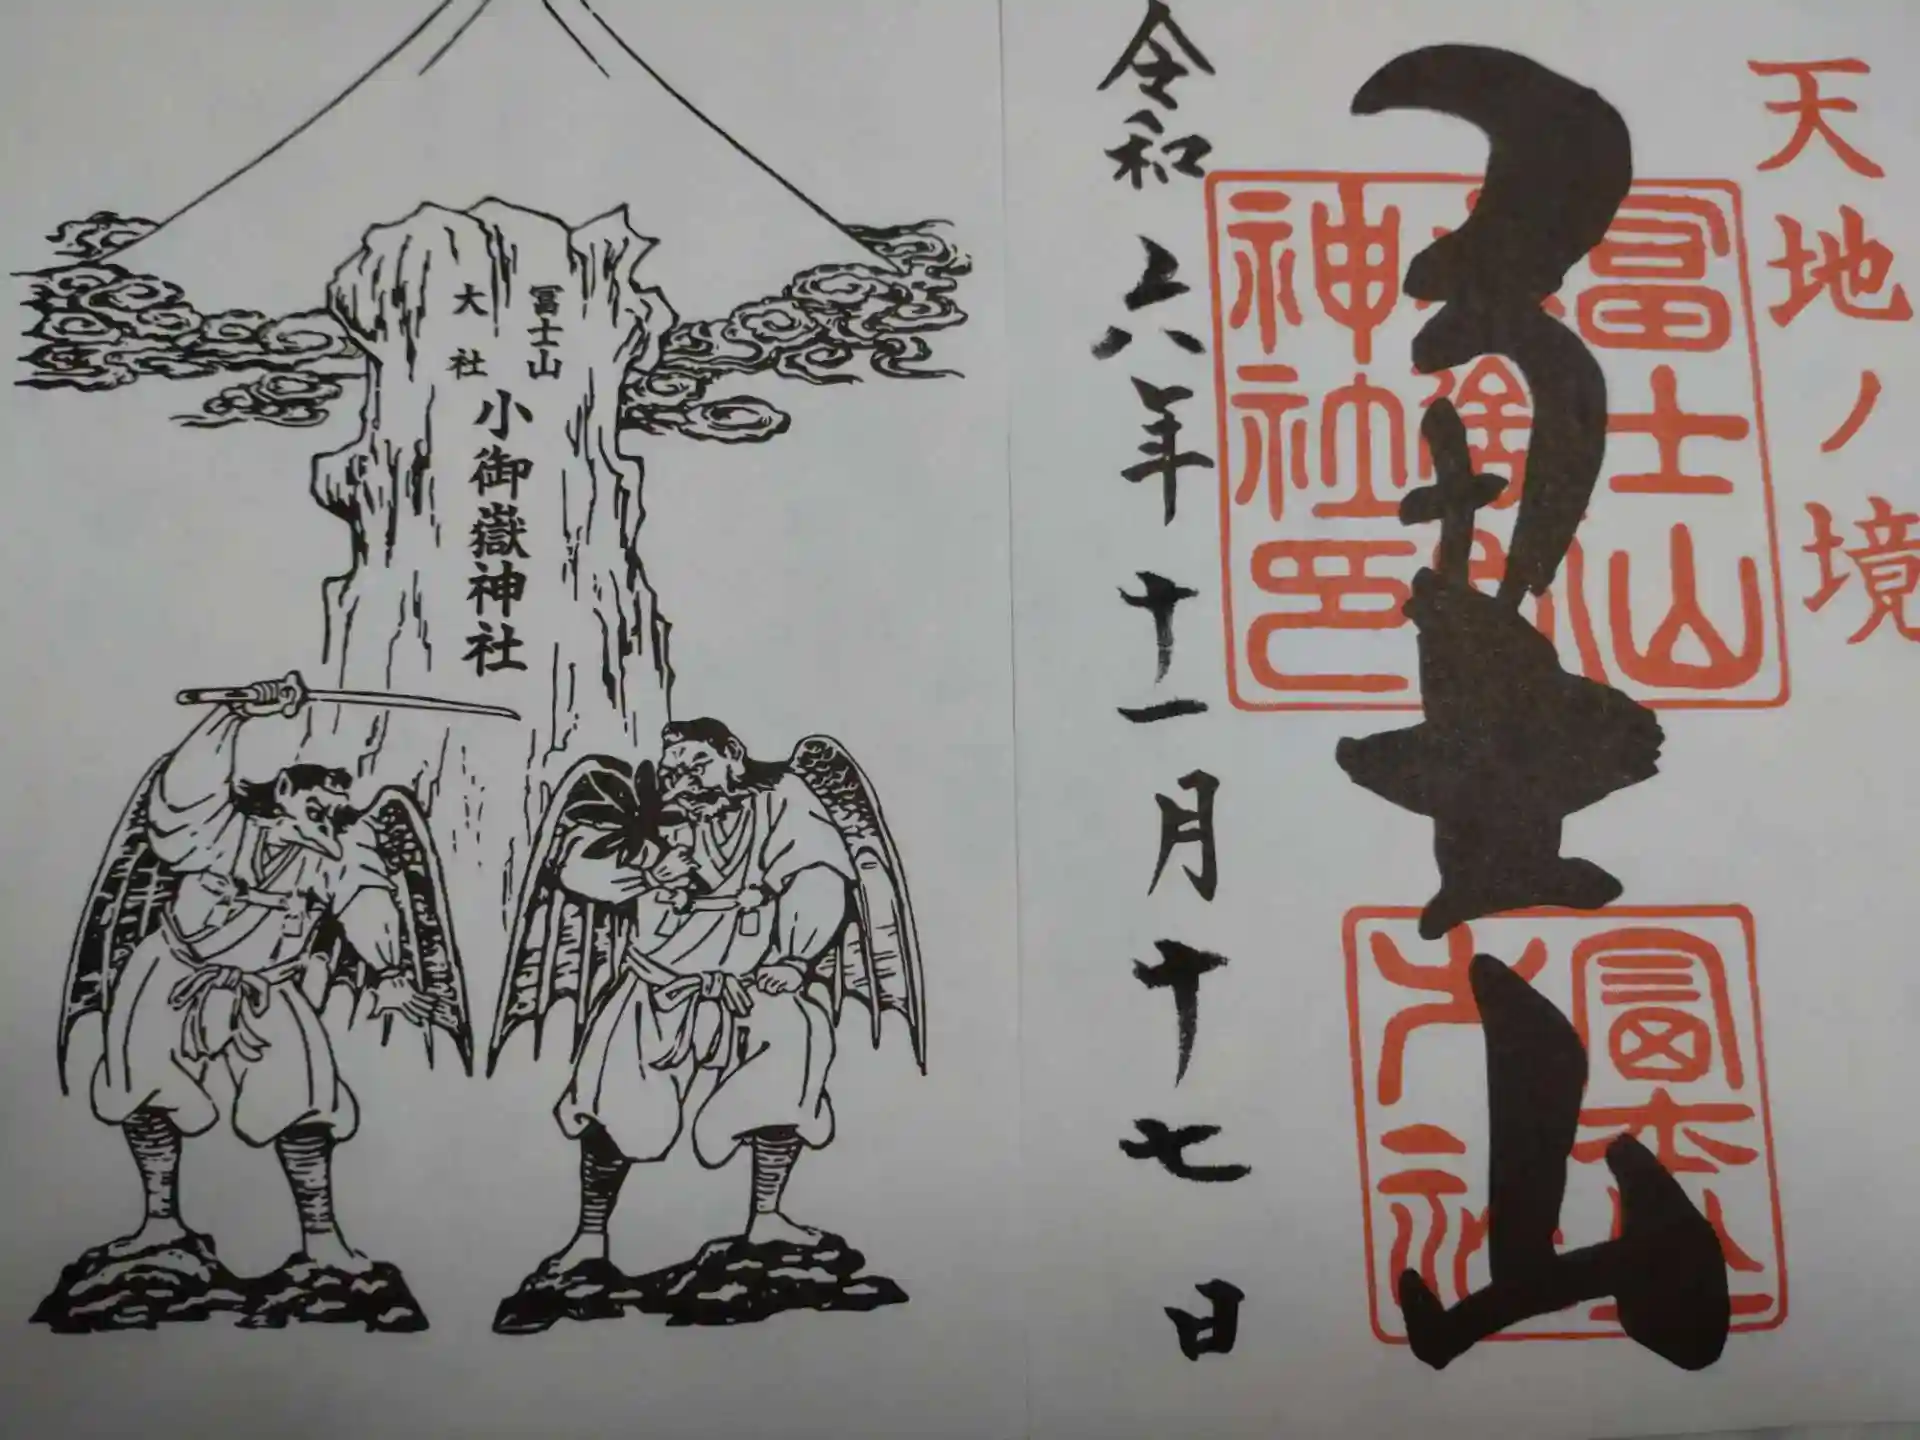 天地ノ境
冨士山
小御嶽
神社印
冨士山
大社
令和六年十一月十七日
冨士山
大社
小御嶽神社